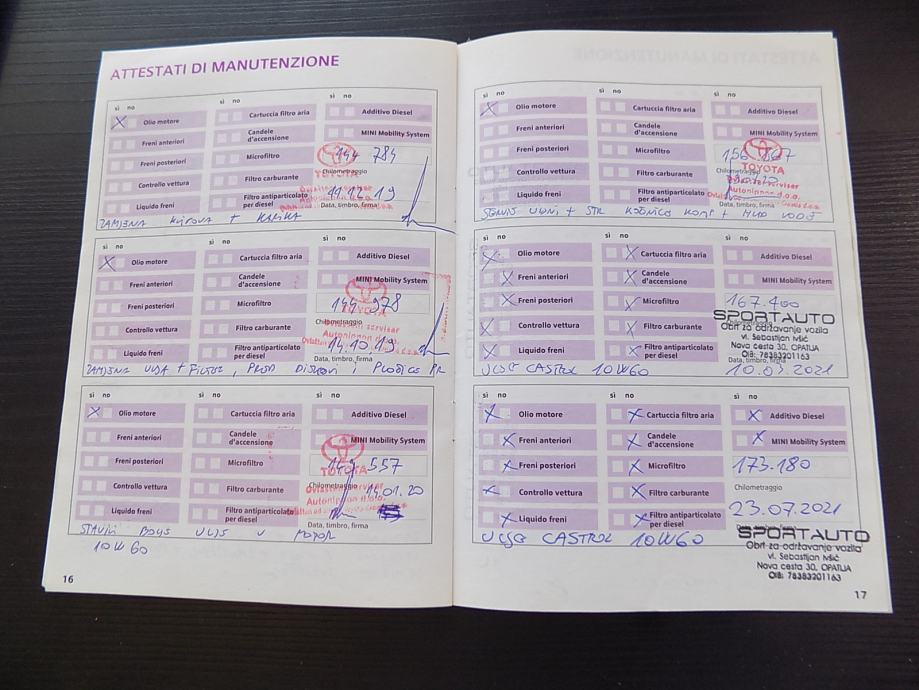 ATTESTATI DI MANUTENZIONE
sì no
Olio motore
Freni anteriori
Freni posteriori
Controllo vettura
Liquido freni
sì no
Cartuccia filtro aria
Candele
d'accensione
Microfiltro
Filtro carburante
Filtro antiparticolato
per diesel
sì no
Additivo Diesel
MINI Mobility System
144 784
TOYOTA
Chilometraggio
11.12.19
Data, timbro, firma
ZAMJENA
sì no
Olio motore
Freni anteriori
Freni posteriori
Controllo vettura
Liquido freni
sì no
Cartuccia filtro aria
Candele
d'accensione
Microfiltro
Filtro carburante
Filtro antiparticolato
per diesel
sì no
Additivo Diesel
MINI Mobility System
144 978
TOYOTA
Chilometraggio
14.10.19
Data, timbro, firma
ZAMJENA ULJA + FILTER, PRED DISKOVI I PLOČICE
sì no
Olio motore
Freni anteriori
Freni posteriori
Controllo vettura
Liquido freni
sì no
Cartuccia filtro aria
Candele
d'accensione
Microfiltro
Filtro carburante
Filtro antiparticolato
per diesel
sì no
Additivo Diesel
MINI Mobility System
557
TOYOTA
Chilometraggio
14.01.20
Data, timbro, firma
ULJE U MOTOR
10W60
16
sì no
Olio motore
Freni anteriori
Freni posteriori
Controllo vettura
Liquido freni
sì no
Cartuccia filtro aria
Candele
d'accensione
Microfiltro
Filtro carburante
Filtro antiparticolato
per diesel
sì no
Additivo Diesel
MINI Mobility System
TOYOTA
Chilometraggio
Data, timbro, firma
SERVIS ULJNI +
sì no
Olio motore
Freni anteriori
Freni posteriori
Controllo vettura
Liquido freni
sì no
Cartuccia filtro aria
Candele
d'accensione
Microfiltro
Filtro carburante
Filtro antiparticolato
per diesel
sì no
Additivo Diesel
MINI Mobility System
167.400
SPORTAUTO
Obrt za održavanje vozila
vl. Sebastijan Ivšić
Nova cesta 30, OPATIJA
OIB: 78383201163
10.03.2021
ULJE CASTROL 10W60
sì no
Olio motore
Freni anteriori
Freni posteriori
Controllo vettura
Liquido freni
sì no
Cartuccia filtro aria
Candele
d'accensione
Microfiltro
Filtro carburante
Filtro antiparticolato
per diesel
sì no
Additivo Diesel
MINI Mobility System
173.180
Chilometraggio
23.07.2021
SPORTAUTO
Obrt za održavanje vozila
vl. Sebastijan Ivšić
Nova cesta 30, OPATIJA
OIB: 78383201163
ULJE CASTROL 10W60
17